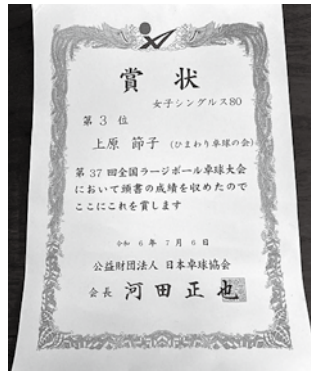 賞状
女子シングルス80
第3位
上原 節子 (ひまわり卓球の会)
第37回全国ラージボール卓球大会
において頭書の成績を収めたので
ここにこれを賞します
令和 6年 7月 6日
公益財団法人 日本卓球協会
会長 河田正也